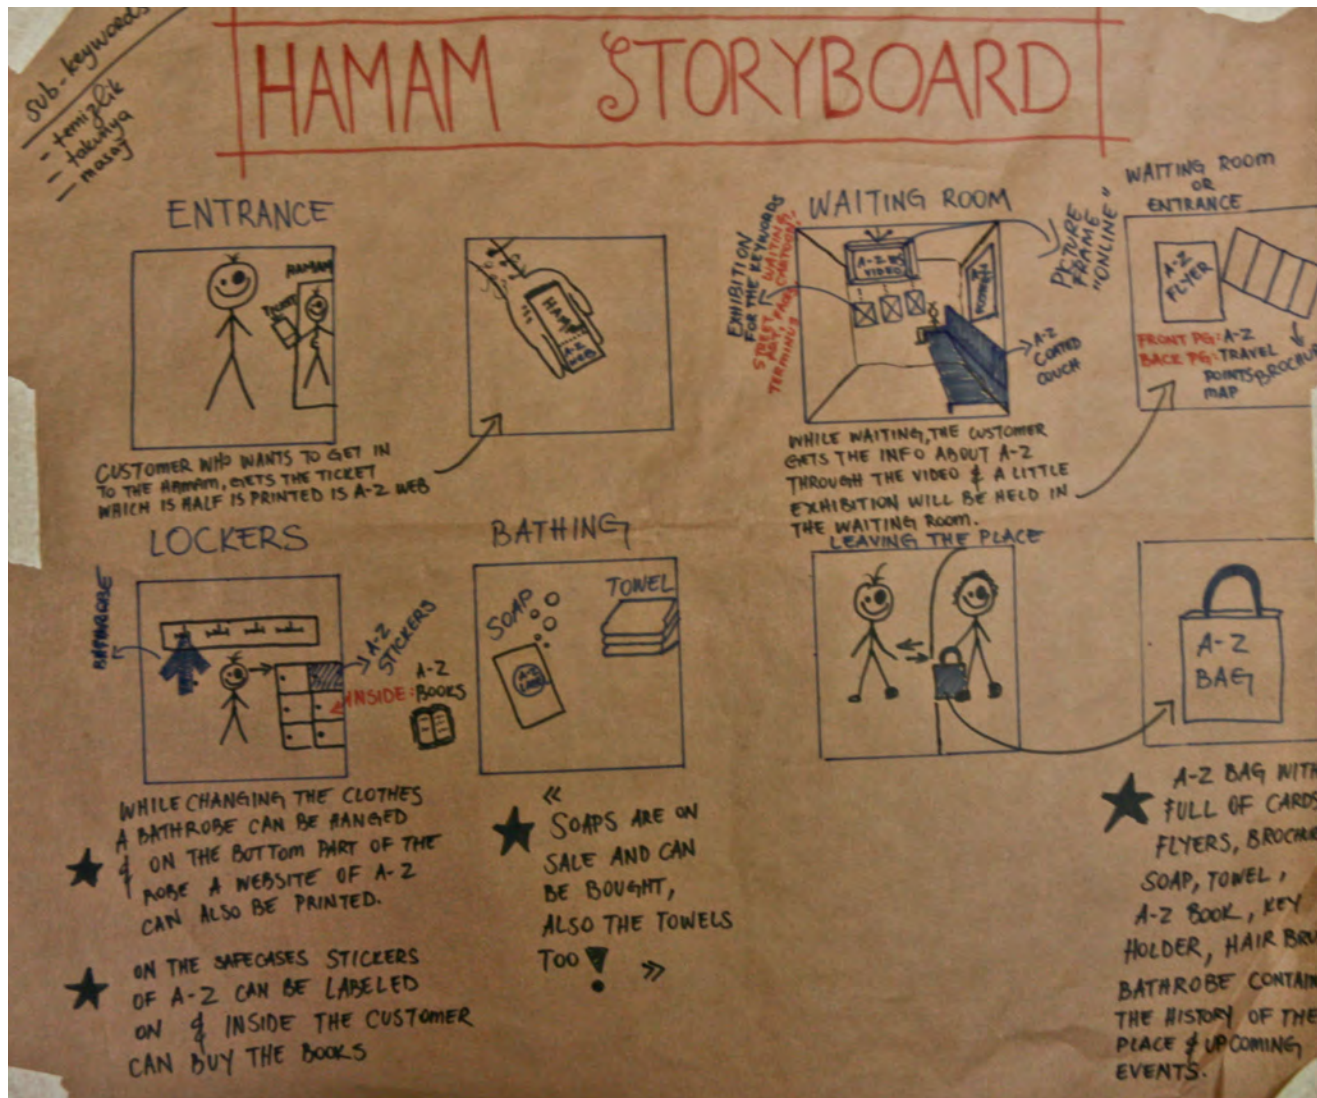 sub-keywords
- temizlik
- takunya
- masaj
HAMAM STORYBOARD
ENTRANCE
HAMAM
TICKET
HAMAM
A-Z WEB
CUSTOMER WHO WANTS TO GET IN
TO THE HAMAM, GETS THE TICKET
WHICH IS HALF IS PRINTED IS A-Z WEB
WAITING ROOM
EXHIBITION
FOR THE KEYWORDS
STREET WAITING,
ART, FACES, CARTOON,
TERMINUS
A-Z
VIDEO
PICTURE
FRAME
"ONLINE"
A-Z
COATED
COUCH
WHILE WAITING, THE CUSTOMER
GETS THE INFO ABOUT A-Z
THROUGH THE VIDEO & A LITTLE
EXHIBITION WILL BE HELD IN
THE WAITING ROOM.
WAITING ROOM
OR
ENTRANCE
A-Z
FLYER
FRONT PG: A-Z
BACK PG: TRAVEL
POINTS
MAP
BROCHUR
LOCKERS
BATHROBE
A-Z
STICKERS
INSIDE: A-Z
BOOKS
WHILE CHANGING THE CLOTHES
A BATHROBE CAN BE HANGED
& ON THE BOTTOM PART OF THE
ROBE A WEBSITE OF A-Z
CAN ALSO BE PRINTED.
ON THE SAFECASES STICKERS
OF A-Z CAN BE LABELED
ON & INSIDE THE CUSTOMER
CAN BUY THE BOOKS
BATHING
SOAP
TOWEL
A-Z
"
SOAPS ARE ON
SALE AND CAN
BE BOUGHT,
ALSO THE TOWELS
TOO! "
LEAVING THE PLACE
A-Z
BAG
A-Z BAG WITH
FULL OF CARDS
FLYERS, BROCHUR
SOAP, TOWEL,
A-Z BOOK, KEY
HOLDER, HAIR BRU
BATHROBE CONTAIN
THE HISTORY OF THE
PLACE & UPCOMING
EVENTS.